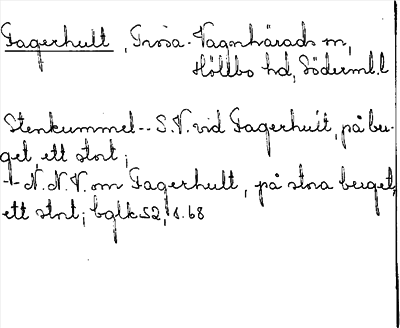 Fagerhult, Trosa-Vagnhärads sn,
Hölebo hd, Söderml. l
Stenkummel-- S.V. vid Fagerhult, på ber-
get, ett stort;
-- N.N.V. om Fagerhult, på stora berget,
ett stort; bglk 52, s. 68